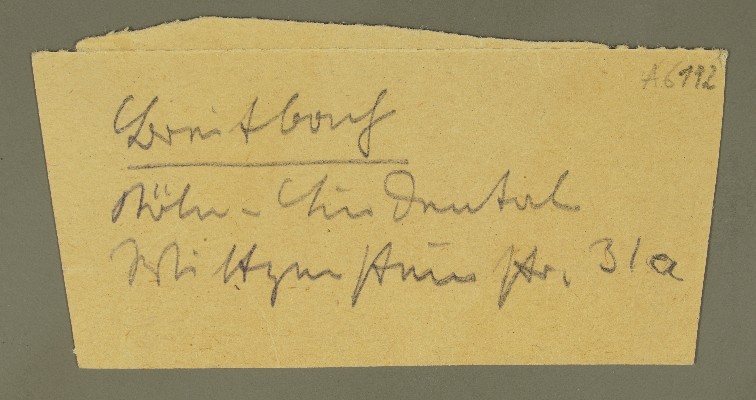 A6112
Breitbach
Köln-Lindental
Wittgensteinstr. 31a